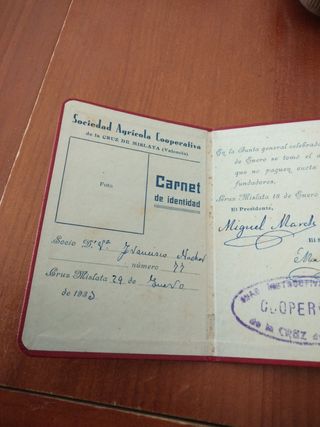 Sociedad Agrícola Cooperativa
de la CRUZ DE MISLATA (Valencia)
Foto
Carnet
de identidad
Socio D.
número 77
Cruz Mislata 29 de Enero
de 193
En la Junta general celebrada
de Enero se tomó el
que no paguen cuota
fundadores.
Cruz Mislata 18 de Enero
El Presidente,
Miguel March
El
COOPER
de la CRUZ de